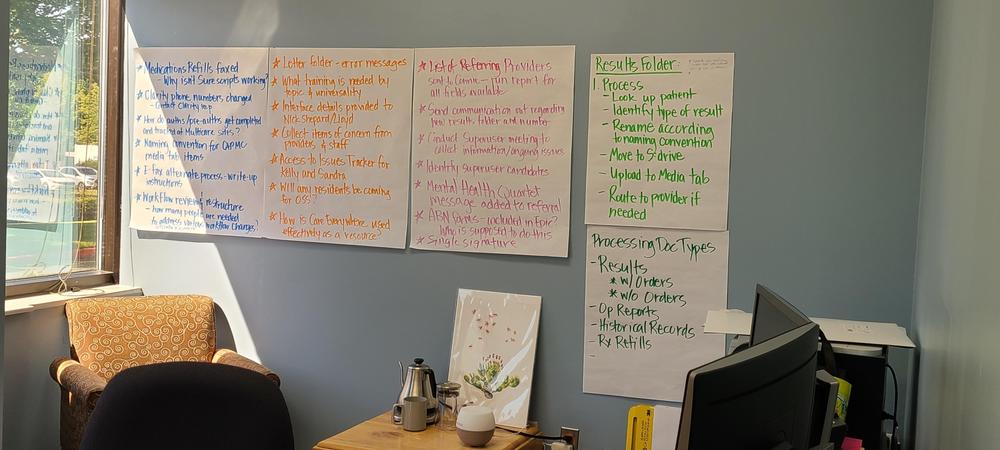 * Medications Refills faxed
- Why isn't Surescripts working?
* Clarity phone numbers changed
- Contact Clarity rep
* How do auths/pre-auths get completed
and tracked at Multicare sites?
* Naming convention for
media tab items
* E fax alternate process - write-up
instructions
* Workflow review & restructure
- how many people are needed
to address various workflow changes?
* Letter folder - error messages
* What training is needed by
topic & universality
* Interface details provided to
Nick Shepard/Lloyd
* Collect items of concern from
providers & staff
* Access to Issues Tracker for
Kelly and Sandra
* Will any residents be coming
for OSS?
* How is Care Everywhere used
effectively as a resource?
* List of Referring Providers
sent to - run report for
all fields available
* Send communication out regarding
new results folder and number
* Conduct Superuser meeting to
collect information/ongoing issues
* Identify superuser candidates
* Mental Health Quartet
message added to referral
* ABN forms - included in Epic?
Who is supposed to do this
* Single signature
Results Folder:
1. Process
- Look up patient
identify type of result
- Rename according
to naming convention
- Move to S: drive
- Upload to Media tab
- Route to provider if
needed
Processing Doc Types
- Results
* w/ Orders
* w/o Orders
- Op Reports
- Historical Records
- Rx Refills